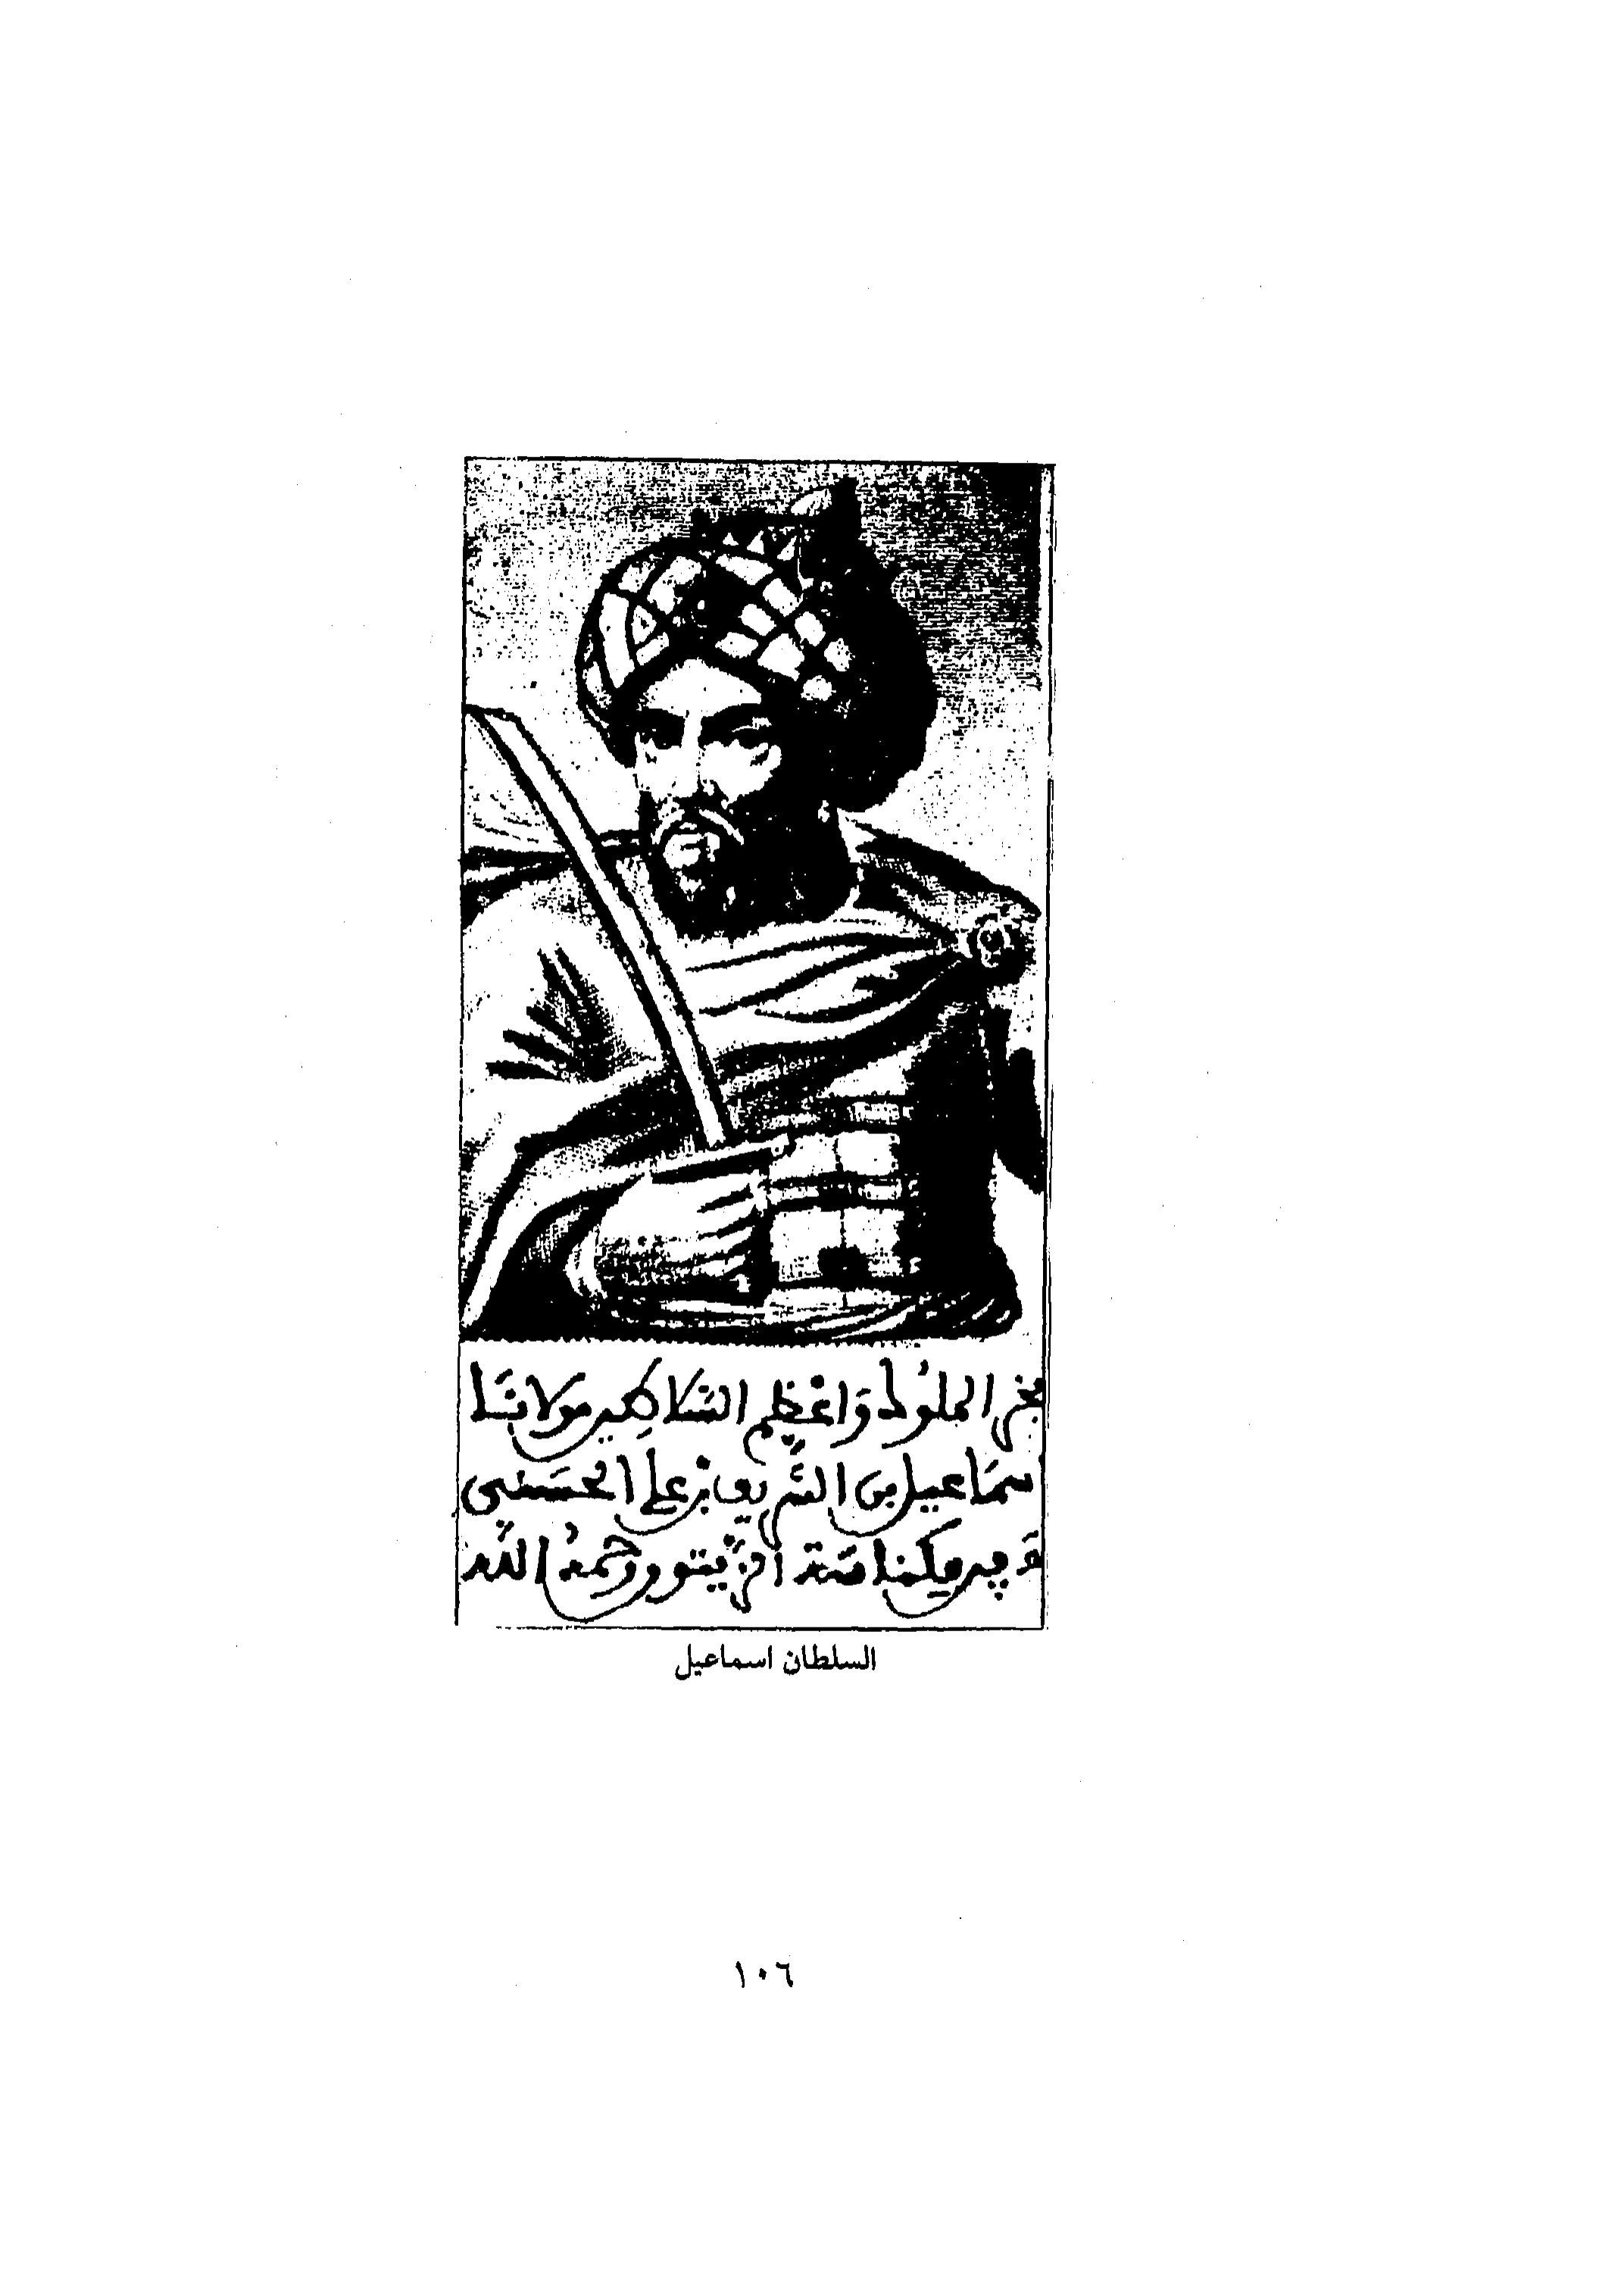 فخر الملوك وَاعْظم السَّلاطين مَولانَا
سمَاعيل بن الشَّريف بن علي الحسَني
مكناسَة الزّيتون رحمهُ اللّه
السلطان اسماعيل
١٠٦